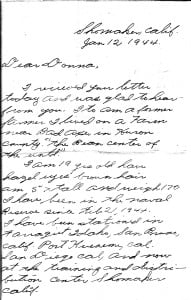 Shomaker, Calif.
Jan 12, 1944.
Dear Donna,
I recived your letter
today and was glad to hear
from you. I to am a farmer
farmer I lived on a Farm
near Bad Axe in Huron
county. "the Bean center of
the world"
I am 19 yrs old have
hazel eyes brown hair
am 5' tall and weigh 170
I have been in the naval
Reserve since Feb 2, 1944.
I have been stationed in
Farragut Idaho, San Bruno,
calif. Port Hueneme, cal.
San Diego cal, and now
at the training and distri-
bution center, Shomaker
calif.